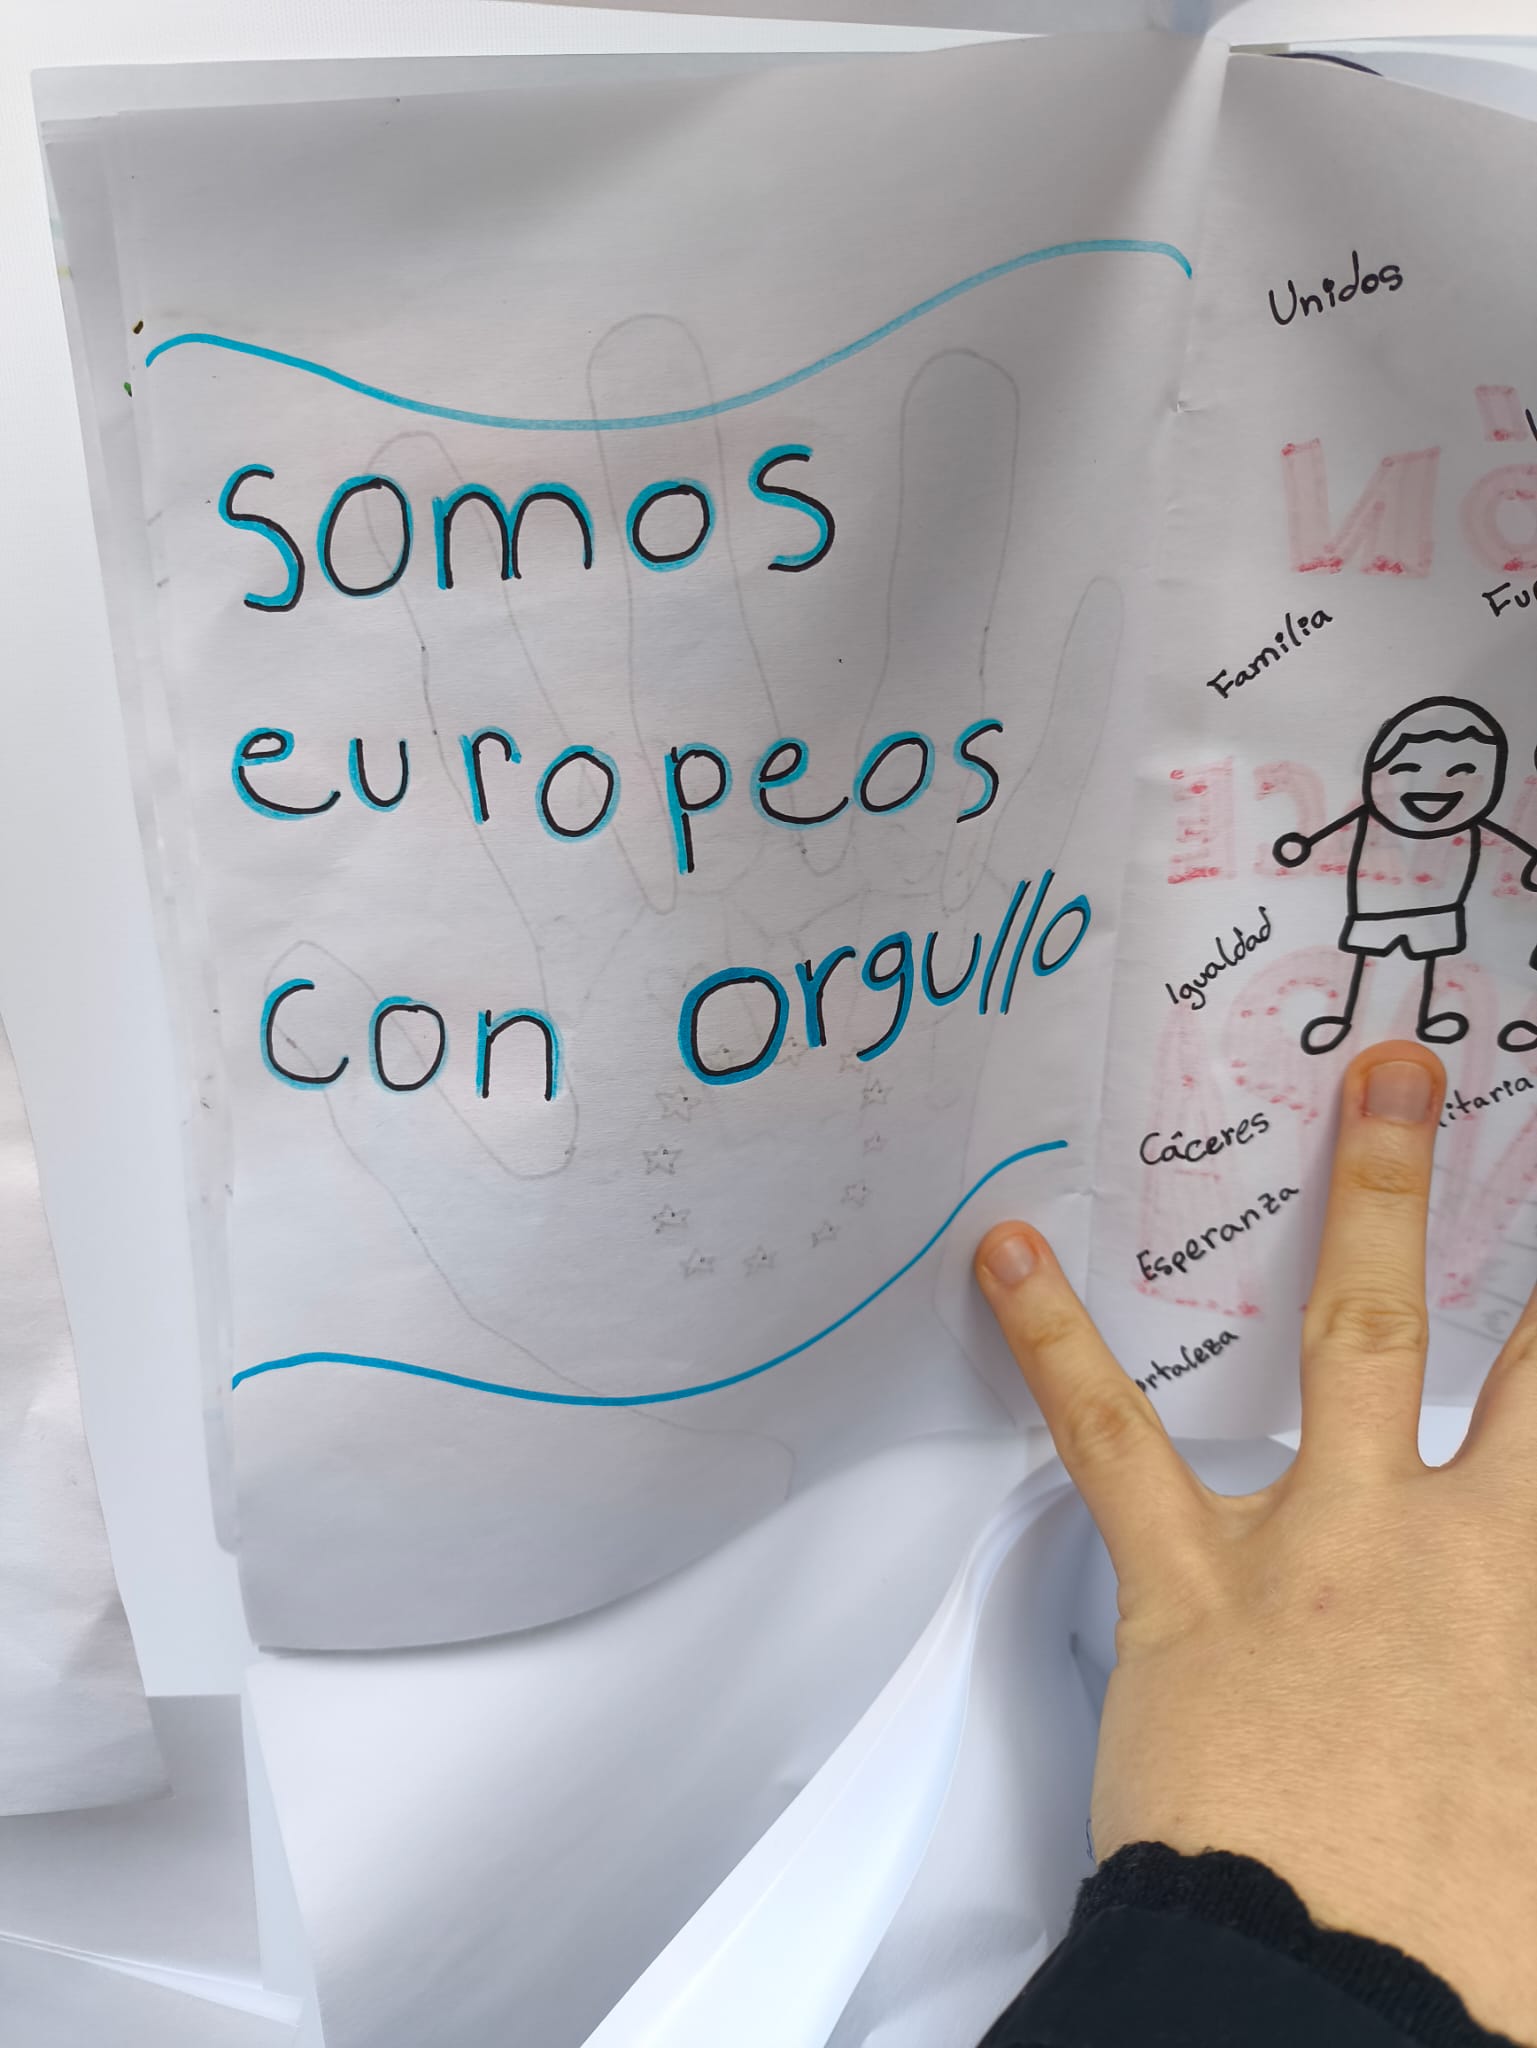 Somos
europeos
con orgullo
Unidos
Familia
Igualdad
Cáceres
Esperanza